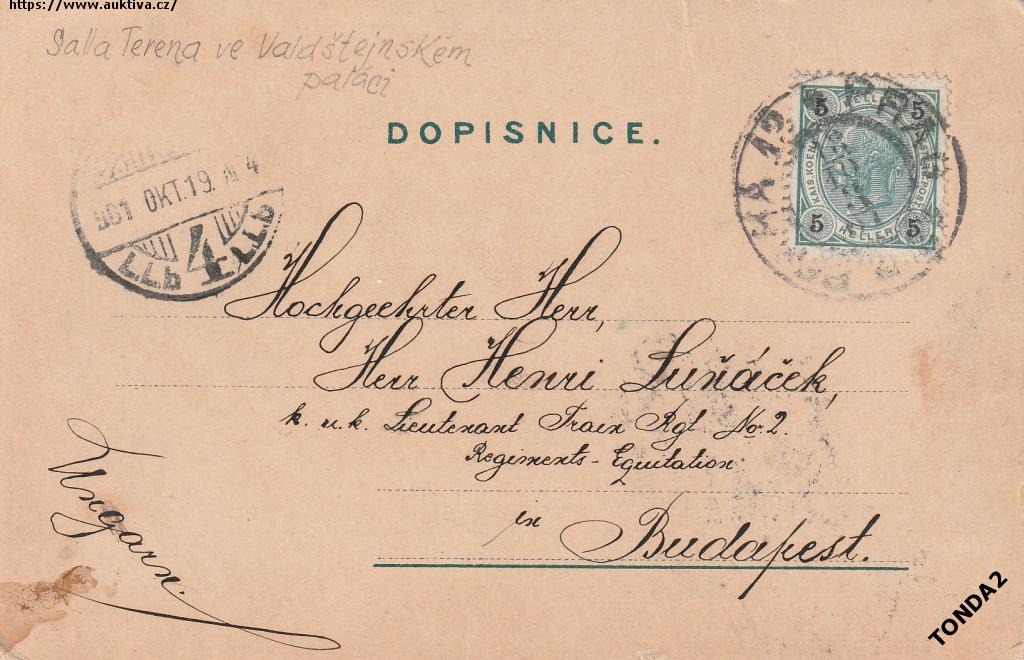 https://www.auktiva.cz/
Salla Terena ve Valdštejnském
paláci
DOPISNICE.
901 OKT.19. 4
4
5 HELLER 5
KAIS.KOENIGL.
5 HELLER 5
Hochgeehrter Herr,
Herr Henri Luňáček,
k. u. k. Lieutenant Train Rgt. No. 2.
Regiments-Equitation
in
Budapest.
Ungarn.
TONDA2